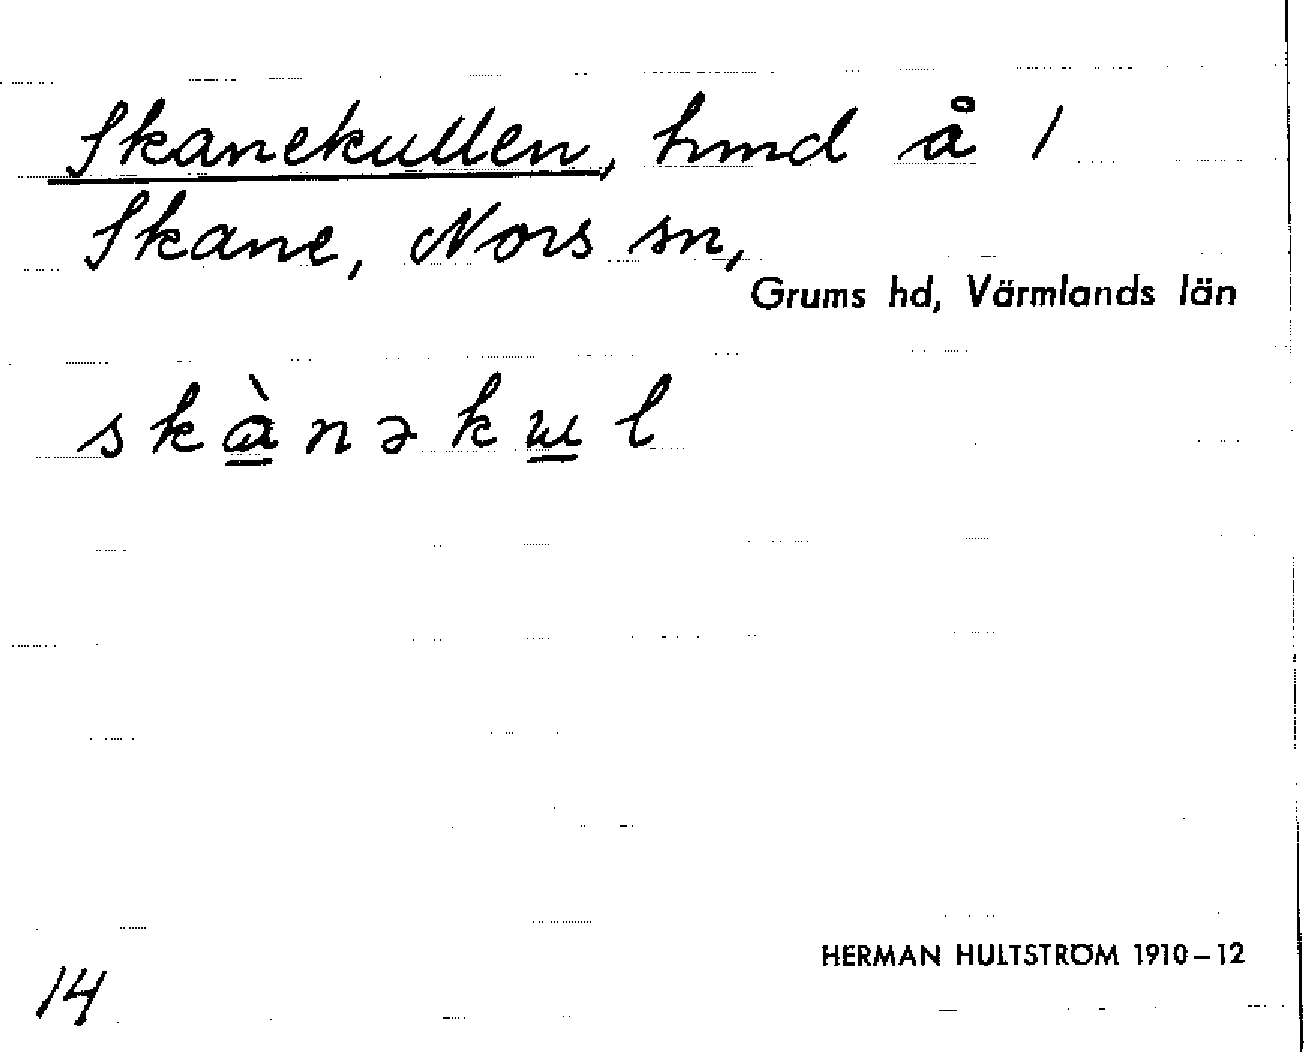 Skanekullen, hmd å 1
Skane, Nors sn,
Grums hd, Värmlands län
skànəkɯl
HERMAN HULTSTRÖM 1910–12
14